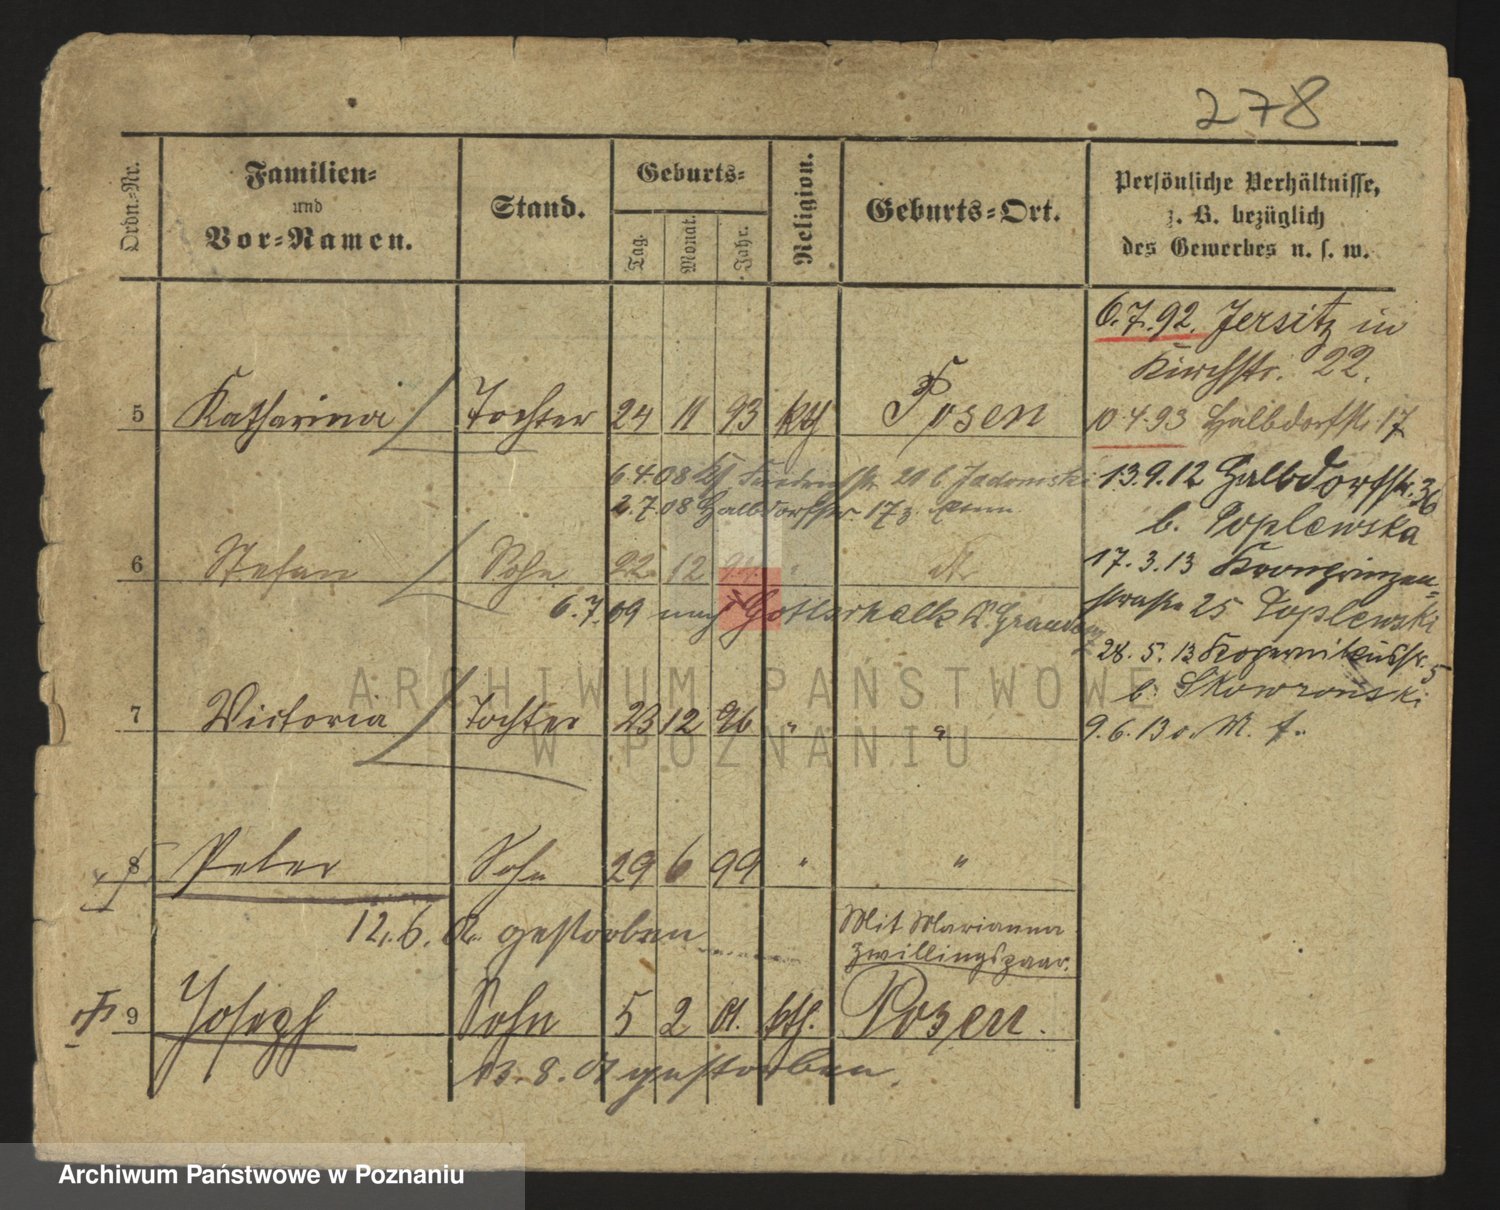 278
Ordn.-Nr.
Familien-
und
Vor-Namen.
Stand.
Geburts-
Tag.
Monat.
Jahr.
Religion.
Geburts-Ort.
Persönliche Verhältnisse,
z. B. bezüglich
des Gewerbes u. s. w.
6.7.92. Jersitz in
Kirchstr. 22.
5 Katharina Tochter 24 11 93 kth Posen
10.4.93 Halbdorfstr. 17
6.4.08 Friedrichstr. 20 b. Jadomski
2.7.08 Halbdorfstr. 17
13.9.12 Halbdorfstr. 36
b. Toplewska
6 Stefan Sohn 22 12
17.3.13 Kronprinzen-
strasse 25 Toplewski
6.7.09 nach Gottersk K. Graudenz
28.5.13 Kopernikusstr. 5
b. Skowronski
7 Victoria Tochter 23 12 96 " "
9.6.13
8 Peter Sohn 29 6 99 " "
12.6. gestorben
Mit Marianna
Zwillingspaar.
9 Joseph Sohn 5 2 01. kth. Posen.
13.8.01 gestorben.
ARCHIWUM PAŃSTWOWE
W POZNANIU
Archiwum Państwowe w Poznaniu